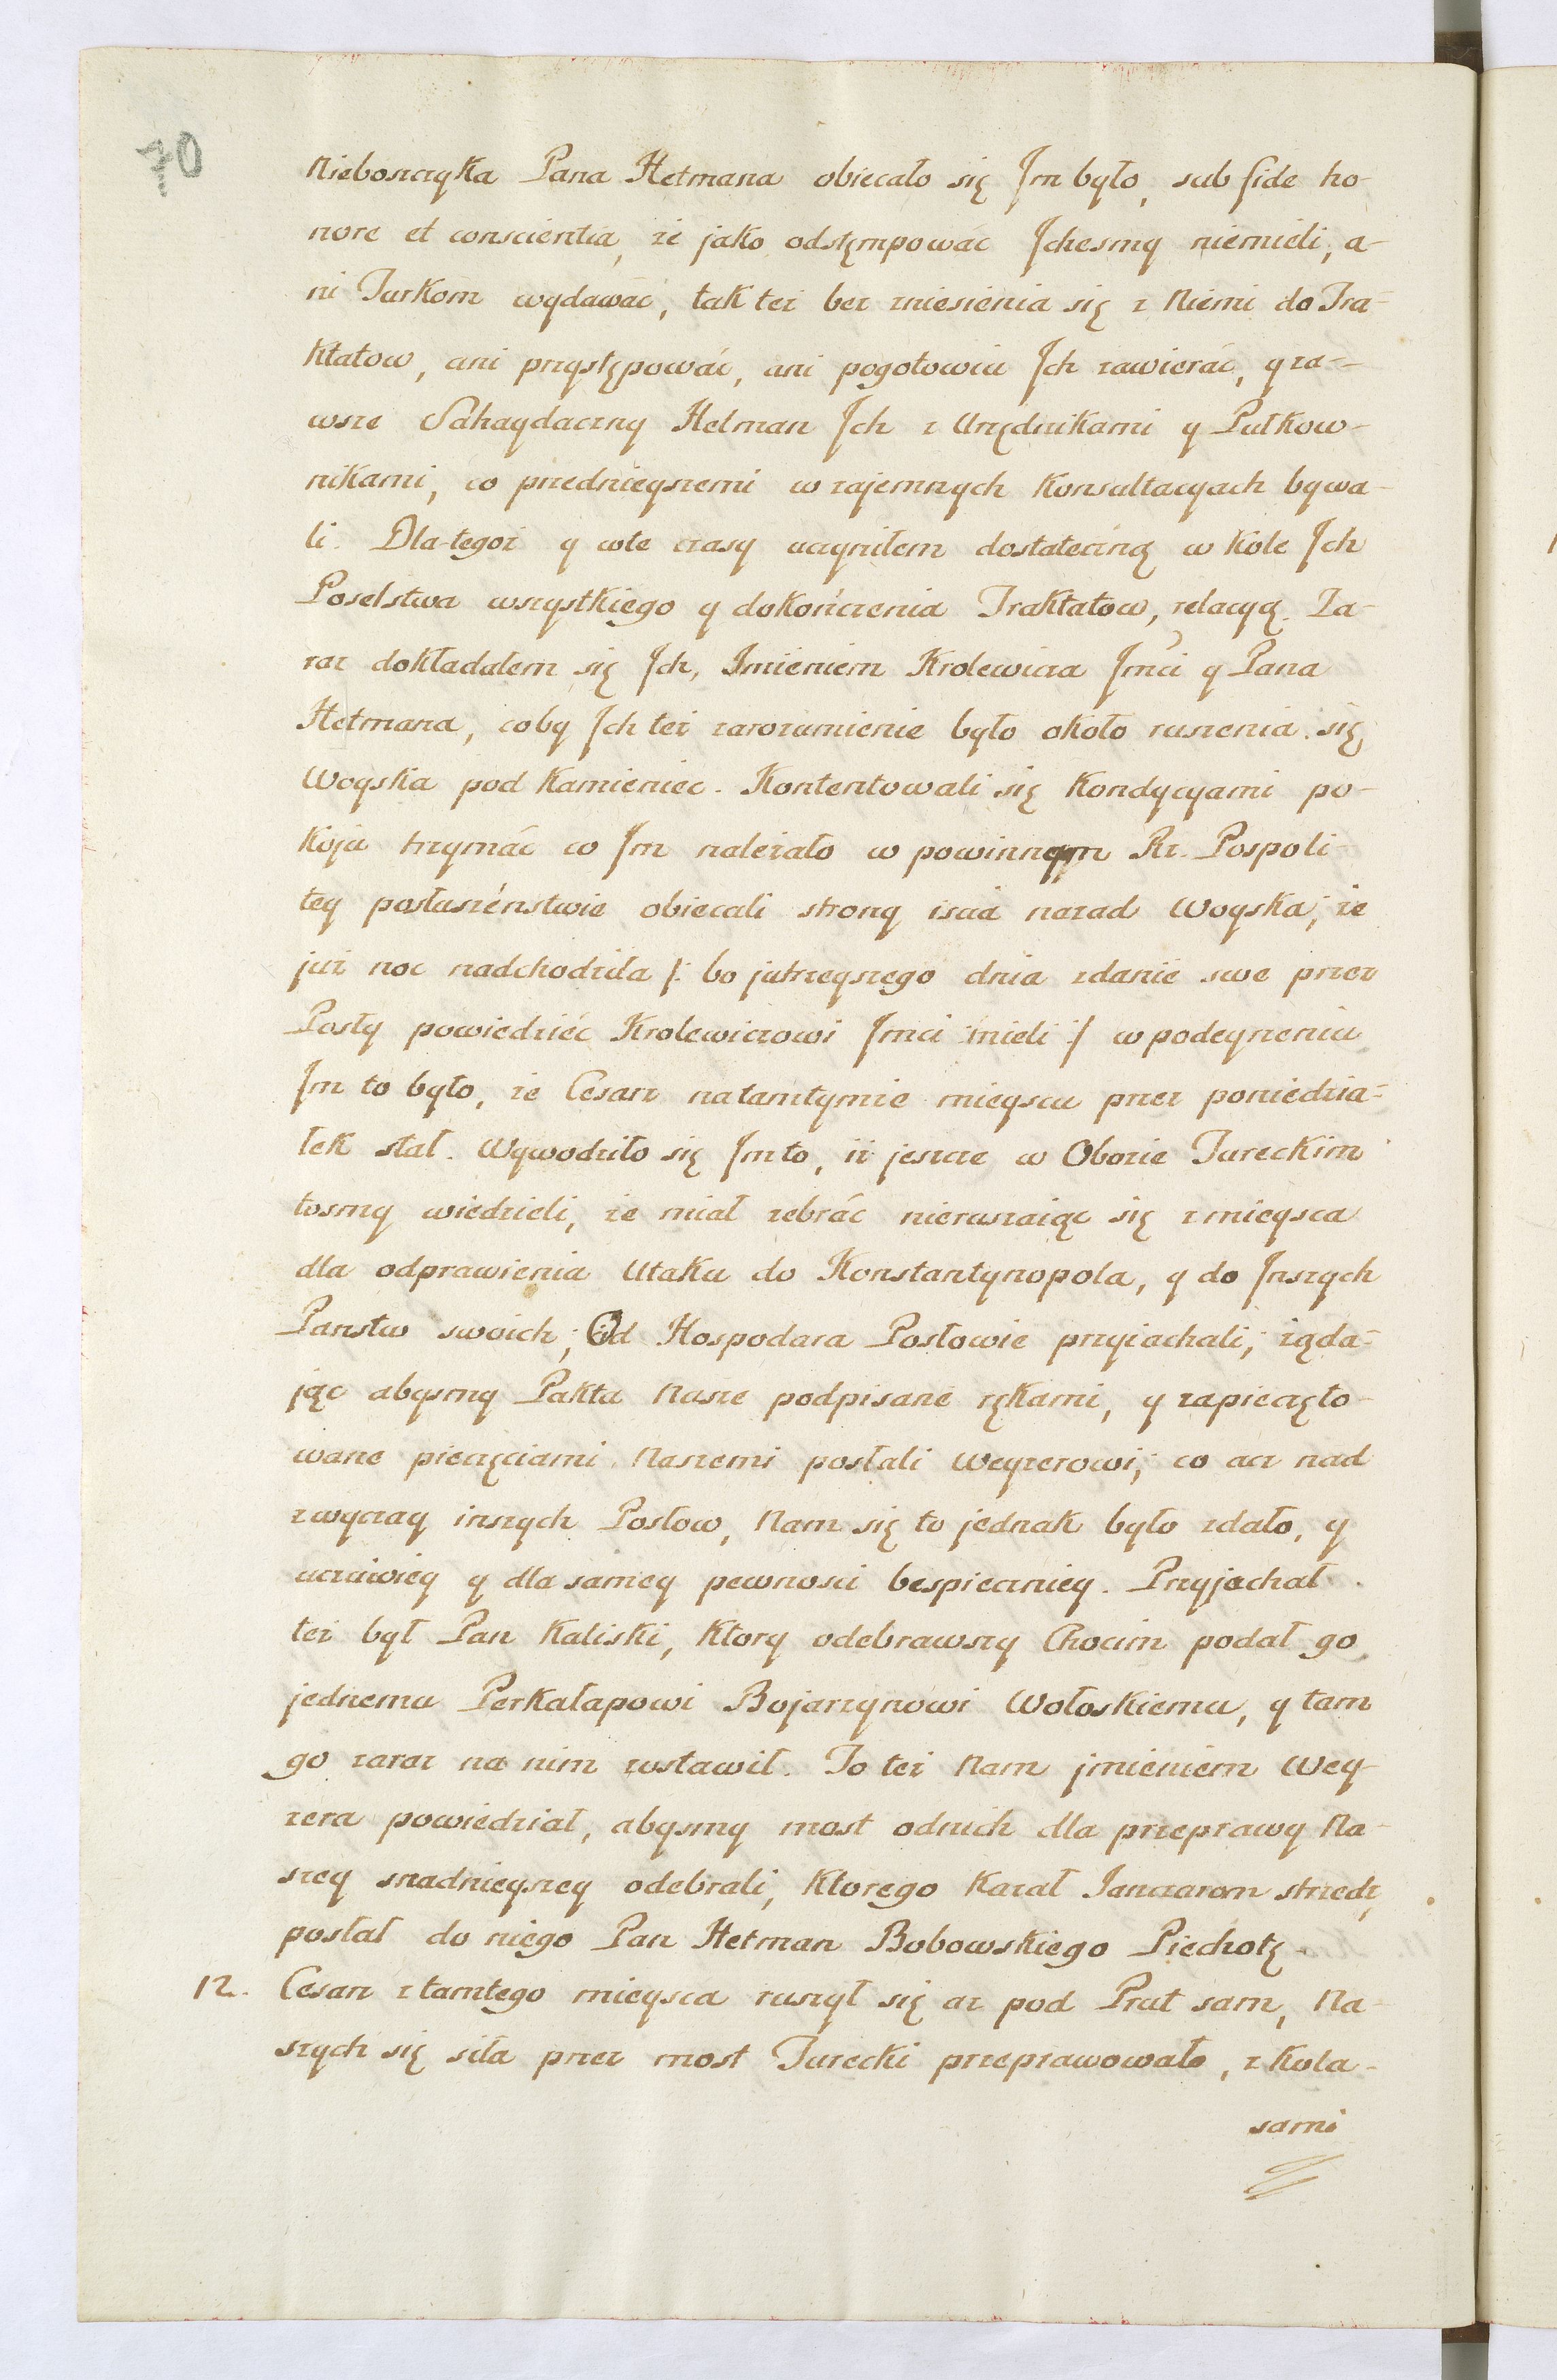 70
Nieboszczyka Pana Hetmana obiecało się Jm było, sub fide ho-
nore et conscientia, że jako odstępmpowáć Jchesmy niemieli, a-
ni Turkom wydawáć, tak też bez zniesienia się z Niemi do Tra-
ktatow, ani przystępowáć, ani pogotowiu Jch zawieráć, y za-
wsze Sahaydaczny Hetman Jch z Urzędnikami y Pułkow-
nikami, co przednieyszemi w tajemnych Konsultacyach bywa-
li. Dla-tegoż y wte czasy uczyniłem dostateczną w Kole Jch
Poselstwa wszystkiego y dokończenia Traktatow, relacyą. Za-
raz dokładałem się Jch, Jmieniem Krolewicza Jmci y Pana
Hetmana, coby Jch też zarozumienie było około ruszenia się
Woyska pod Kamieniec. Kontentowali się Kondycyami po-
koju trzymáć co Jm należało w powinnym Rz. Pospoli-
tey posłuszéństwie obiecali strony iscia nazad Woyska; że
już noc nadchodziła /: bo jutrzeyszego dnia zdanie swe przez
Posły powiedziéć Krolewiczowi Jmci mieli :/ w podeyzeniu
Jm to było, że Cesarz natamtymże mieyscu przez poniedzia-
łek stał. Wywodziło się Jm to, iż jeszcze w Obozie Tureckim
tosmy wiedzieli, że miał zebráć nieruszaiąc się z mieysca
dla odprawienia Utaku do Konstantynopola, y do Jnszych
Panstw swoich; Od Hospodara Posłowie przyiachali, żąda-
jąc abysmy Pakta Nasze podpisane rękami, y zapieczęto-
wane pieczęciami Naszemi posłali Weyzerowi; co acz nad
zwyczay inszych Posłow, Nam się to jednak było zdało, y
uczciwiey y dla samey pewnosci bespieczniey. Przyjachał
też był Pan Kaliski, Ktory odebrawszy Chocim podał go
jednemu Perkałapowi Bojarzynowi Wołoskiemu, y tam
go zaraz na nim zostawił. To też Nam jmieniem Wey-
zera powiedział, abysmy most odnich dla przeprawy Na-
szey snadnieyszey odebrali, Ktorego Kazał Janczarom strzedz,
posłał do niego Pan Hetman Bobowskiego Piechotę.
12. Cesarz z tamtego mieysca ruszył się aż pod Prut sam, Na-
szych się siła przez most Turecki przeprawowało, z Kola-
sami